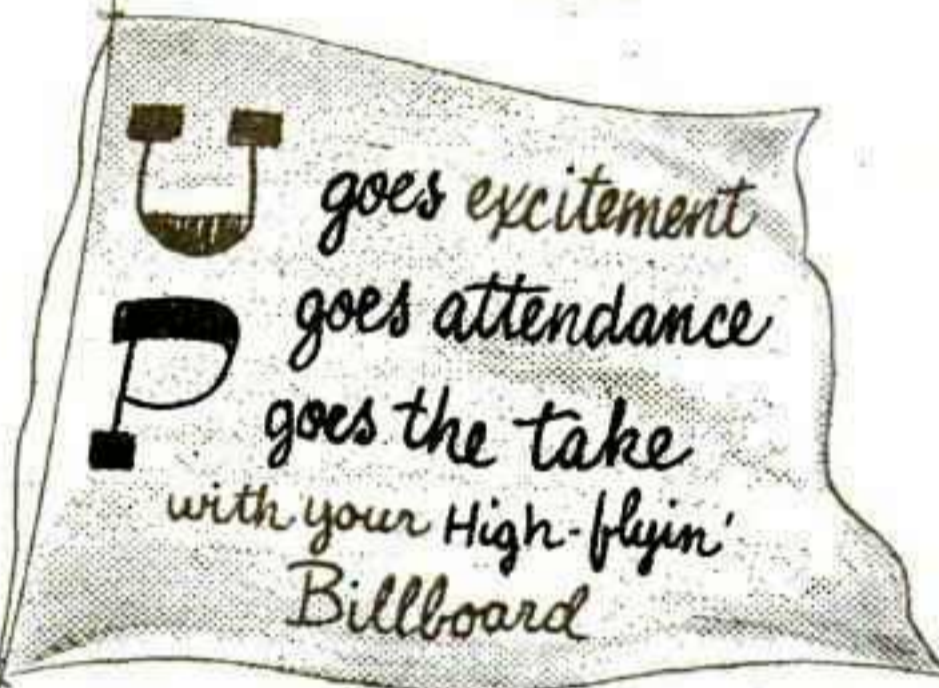 UP
goes excitement
goes attendance
goes the take
with your High-flyin'
Billboard